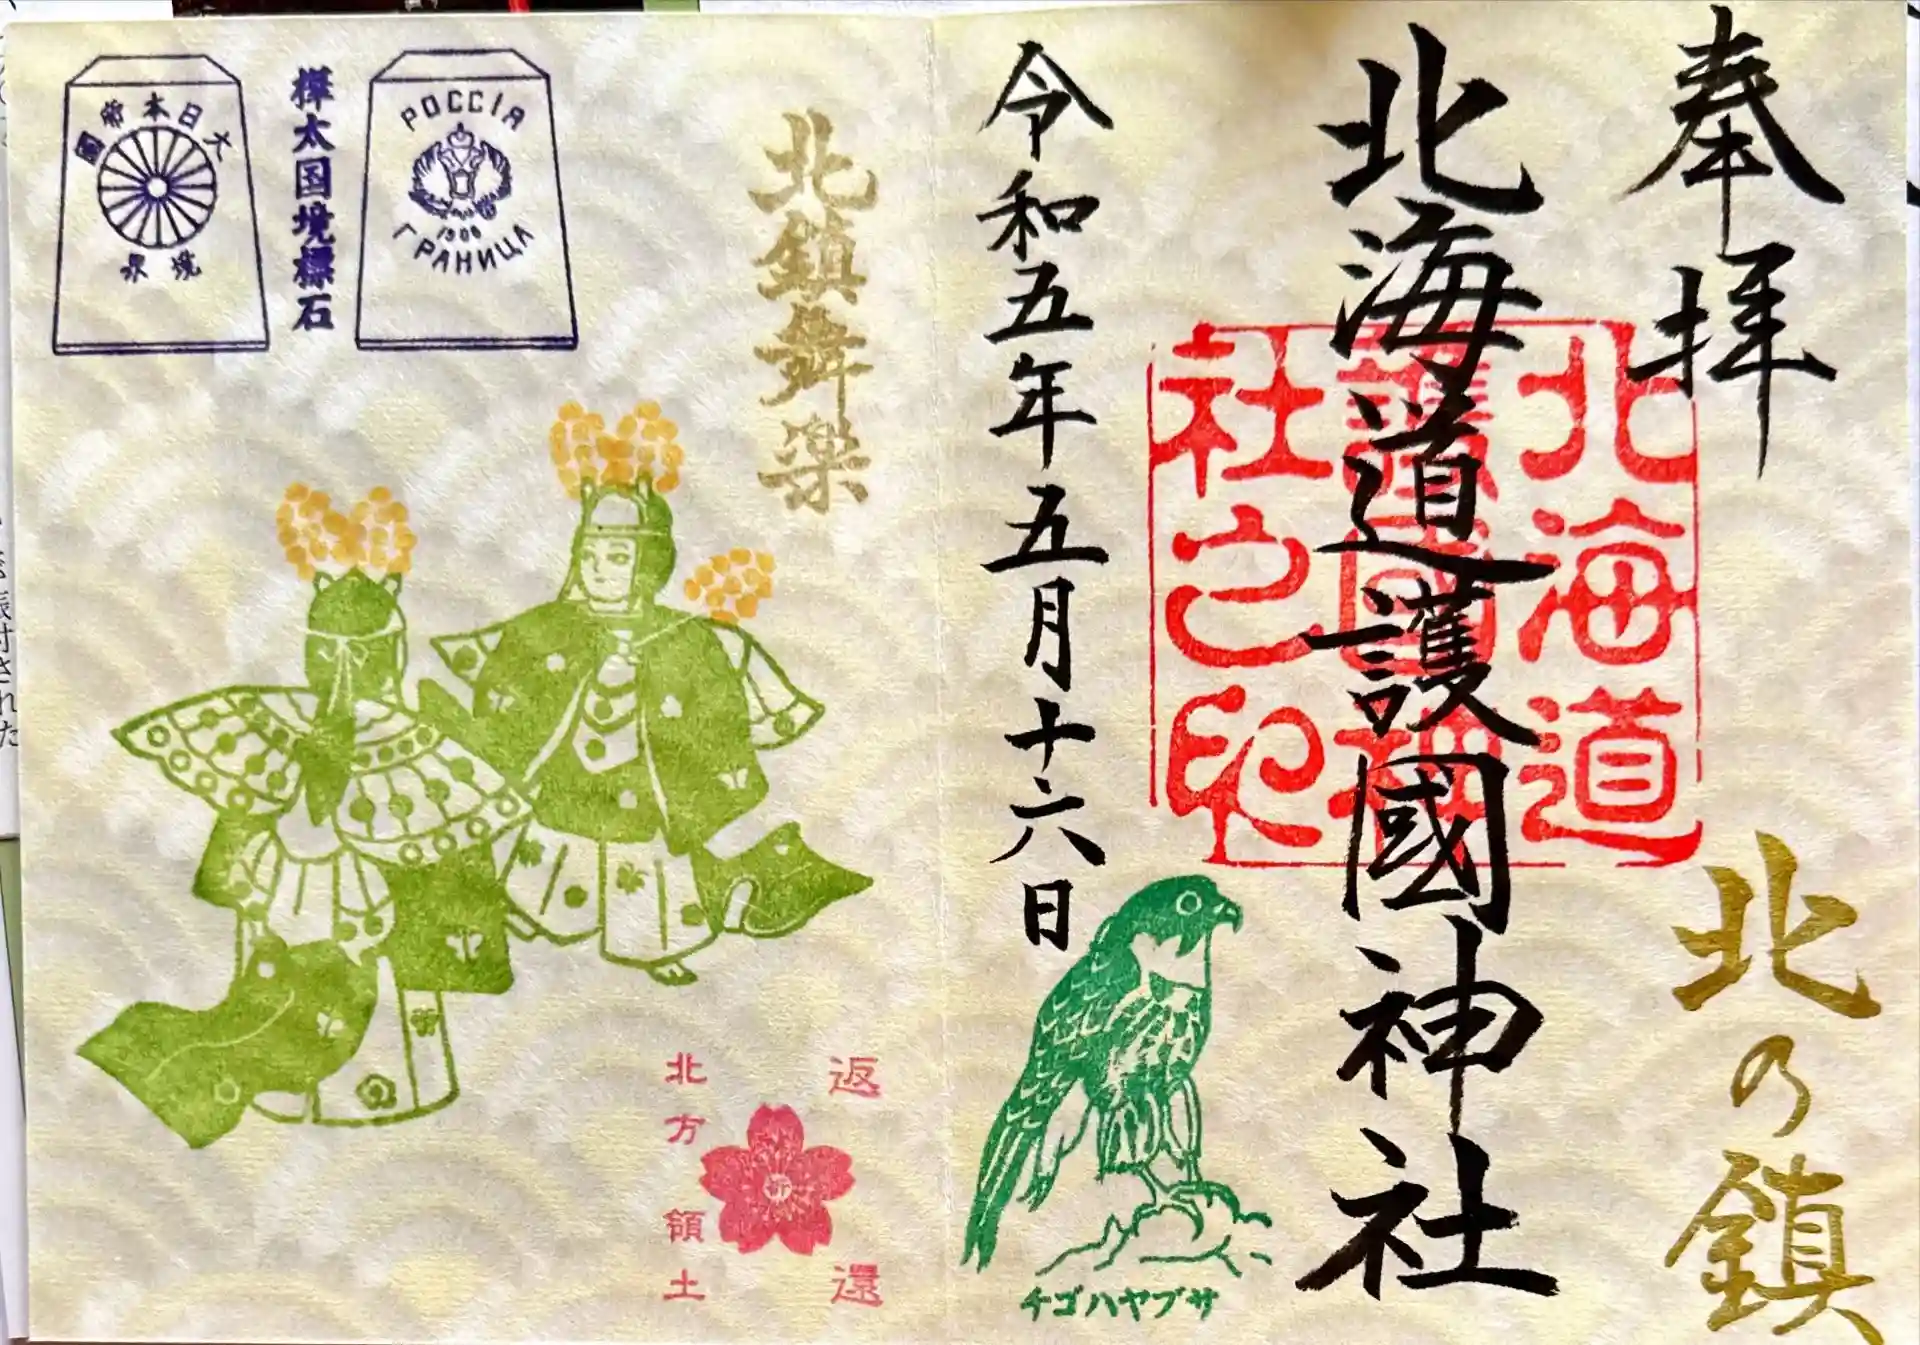 奉拝
北海道護國神社
北の鎮
北海道
護國神
社之印
令和五年五月十六日
チゴハヤブサ
北鎮舞楽
РОССІЯ
1906
ГРАНИЦА
樺太国境標石
大日本帝國
境界
返還
北方領土